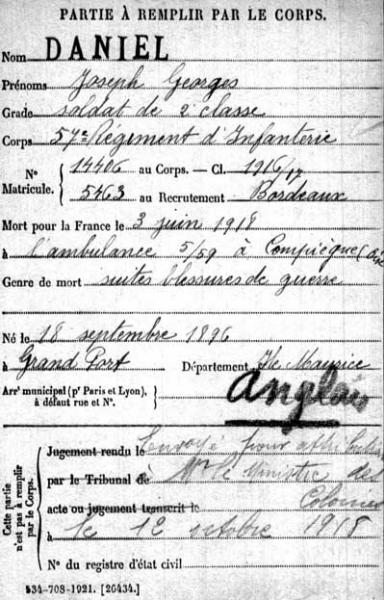 PARTIE À REMPLIR PAR LE CORPS.
Nom DANIEL
Prénoms Joseph Georges
Grade soldat de 2e classe
Corps 57e Régiment d'Infanterie
N° Matricule. { 14406 au Corps. — Cl. 1916/17
5463 au Recrutement Bordeaux
Mort pour la France le 3 juin 1918
à l'ambulance 5/59 à Compiègne (Oise
Genre de mort suites blessures de guerre
Né le 18 septembre 1896
à Grand Port Département Ile Maurice
Arrt municipal (pr Paris et Lyon), à défaut rue et N°.
Anglais
Cette partie n'est pas à remplir par le Corps.
Jugement rendu le Envoyé pour attribution
par le Tribunal de à Mr le Ministre des
acte ou jugement transcrit le Colonies
à le 1er octobre 1918
N° du registre d'état civil
534-708-1921. [26434.]